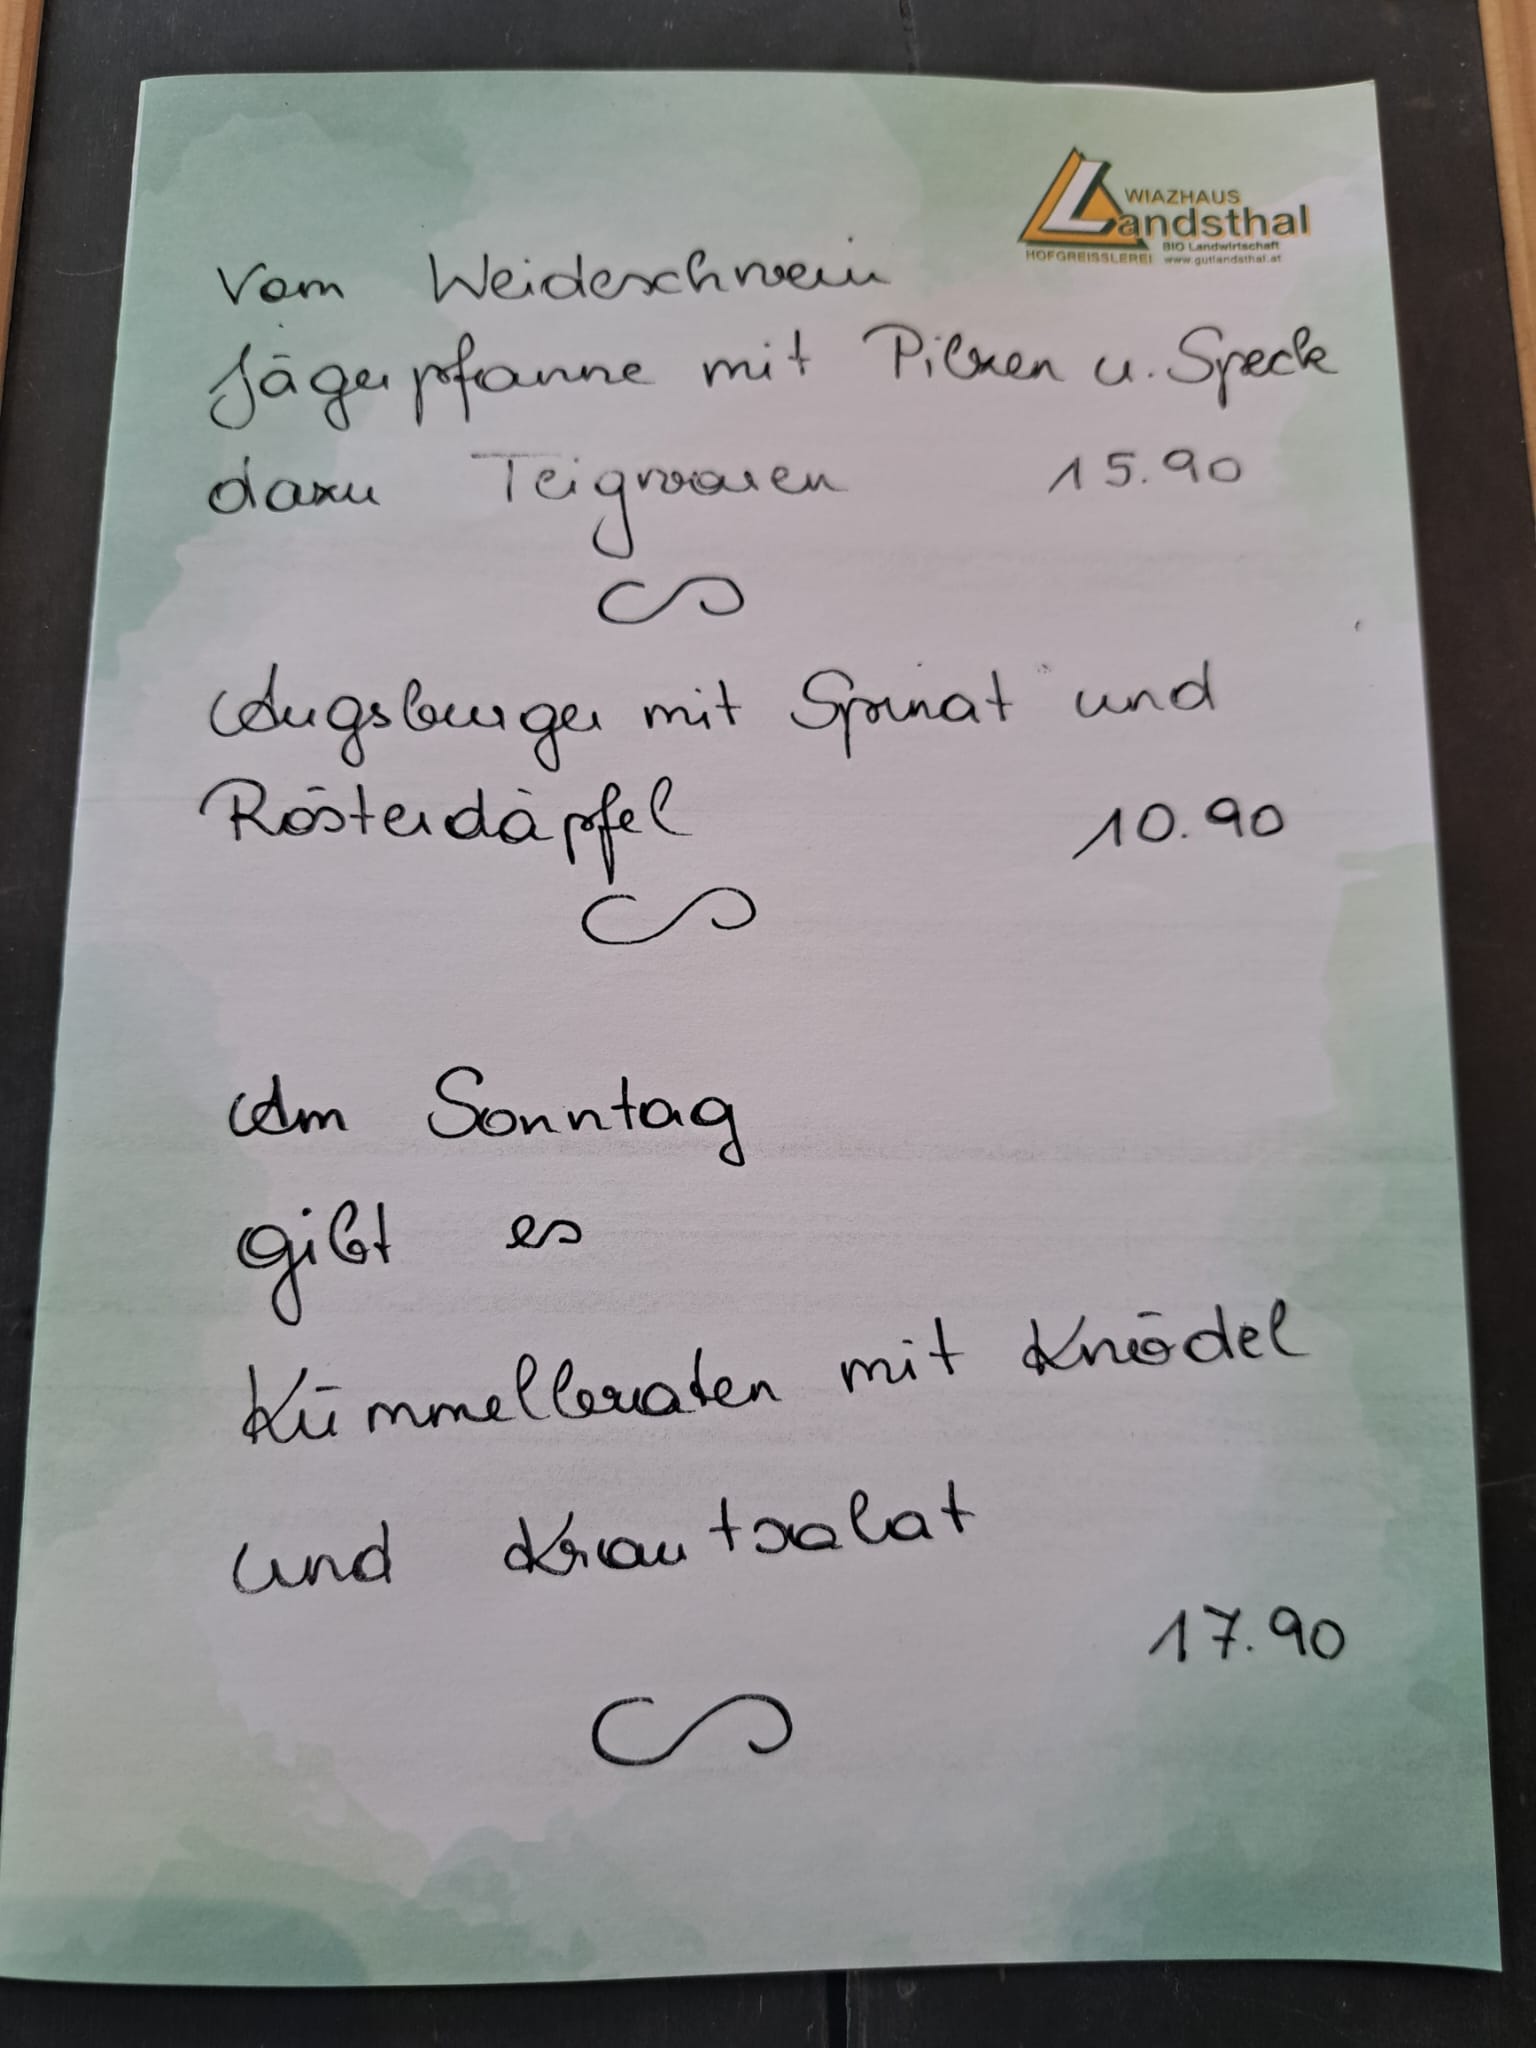 WIAZHAUS
Landsthal
BIO Landwirtschaft
HOFGREISSLEREI www.gutlandsthal.at
Vom Weideschwein
Jägerpfanne mit Pilzen u. Speck
dazu Teigwaren 15.90
Augsburger mit Spinat und
Rösterdäpfel 10.90
Am Sonntag
gibt es
Kümmelbraten mit Knödel
und Krautsalat
17.90